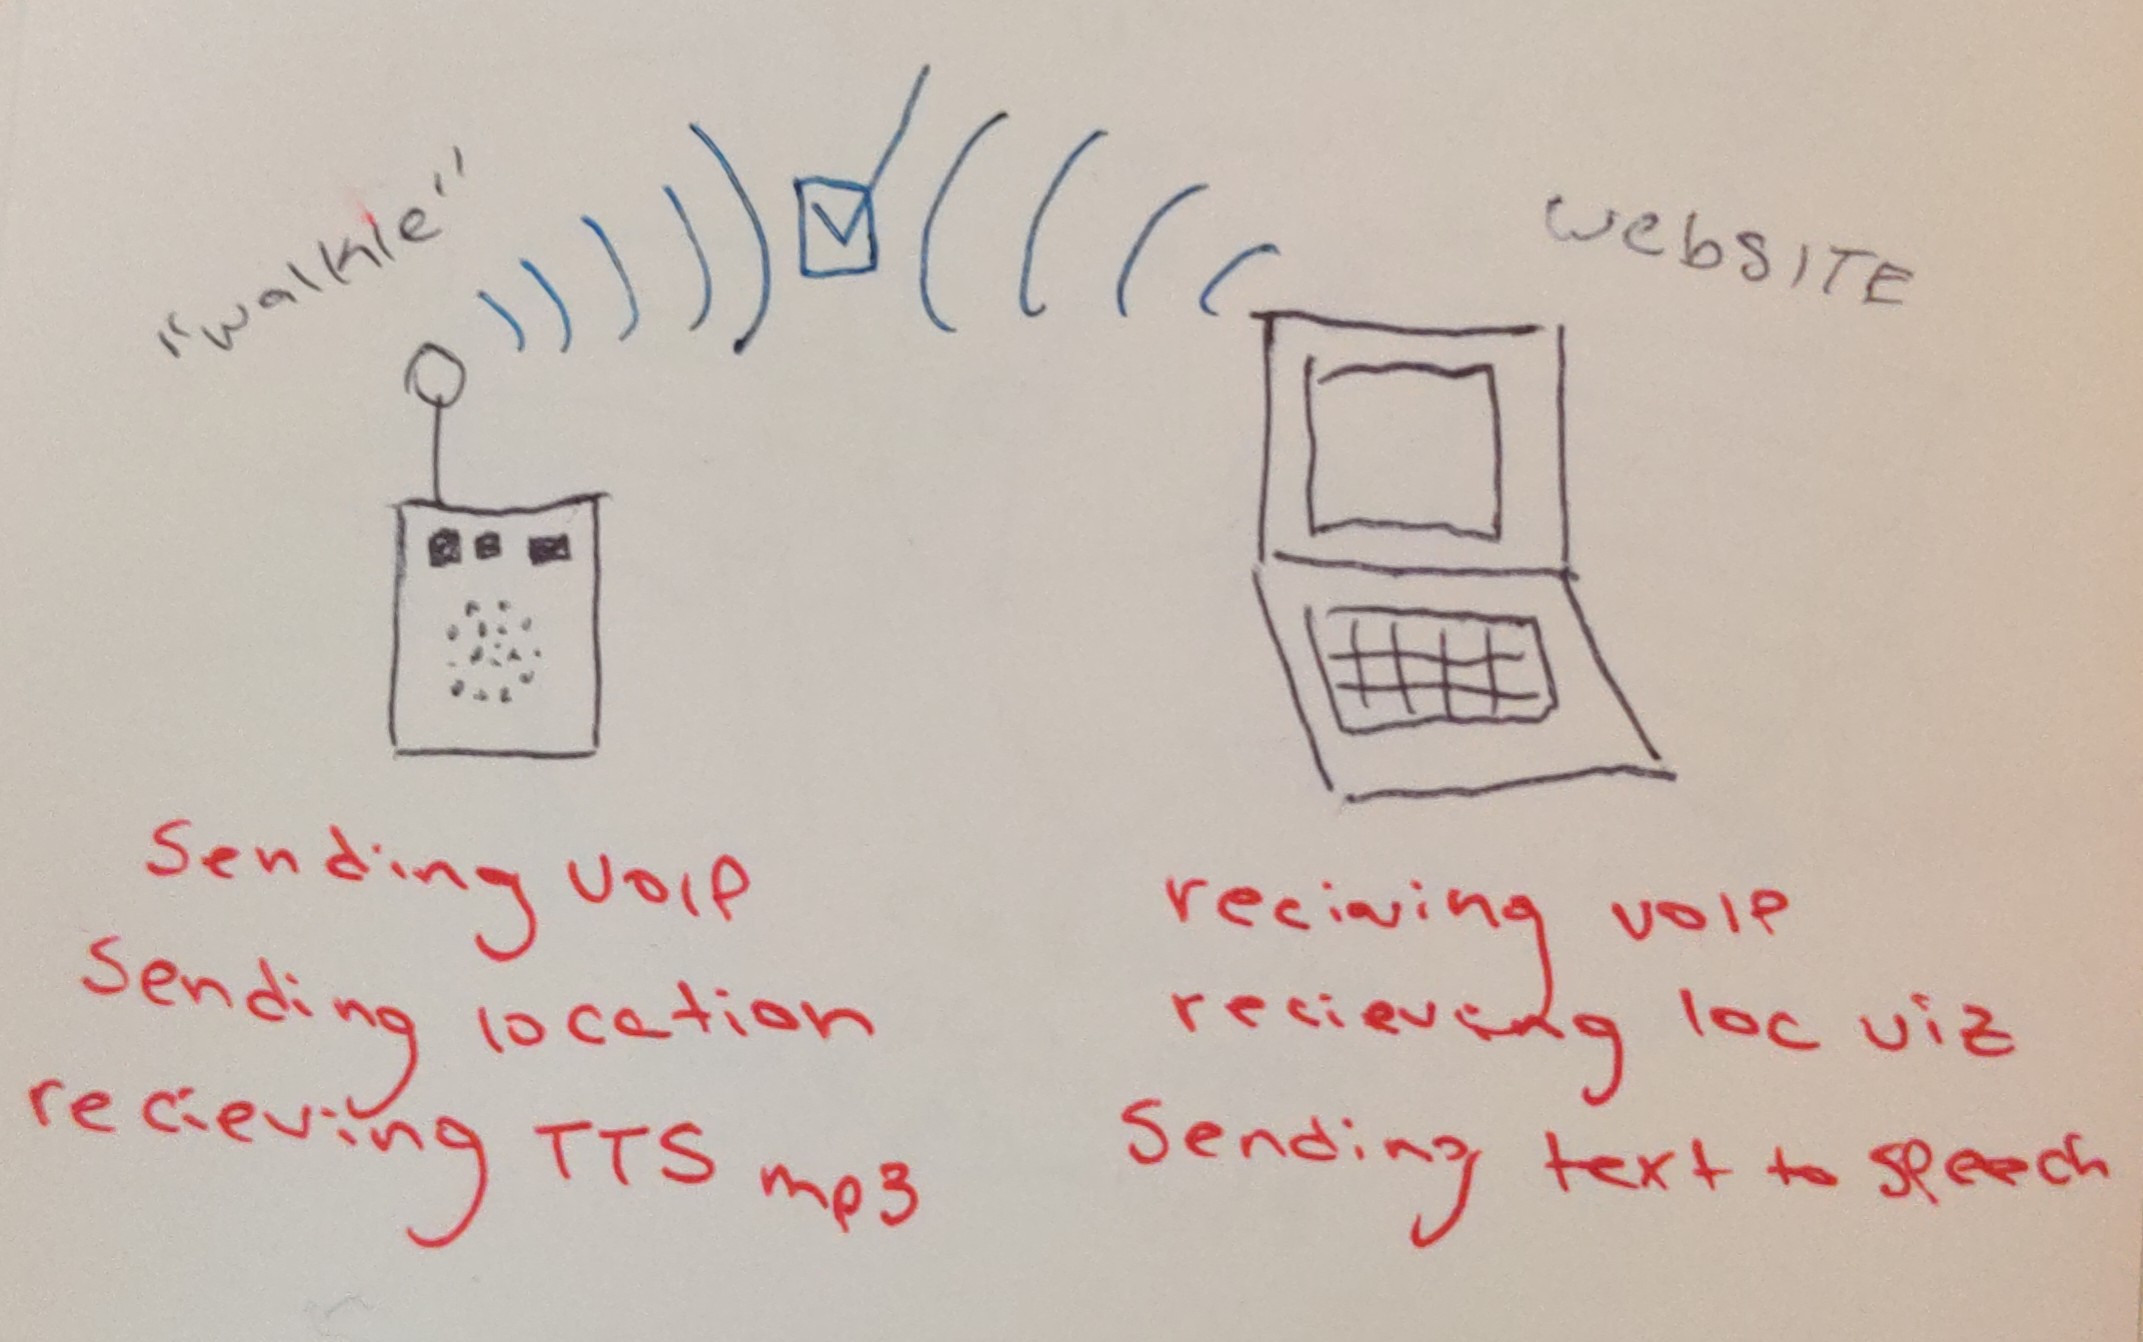 "walkie"
WebSITE
Sending VOIP
Sending location
recieving TTS mp3
reciving VOIP
recieving loc viz
Sending text to speech